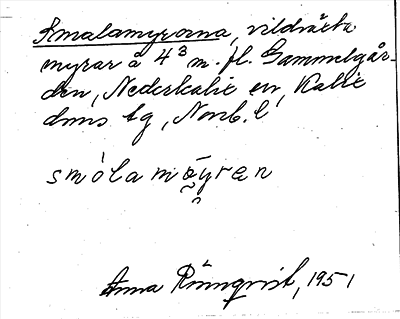 Smalamyrorna, vildväxta
myrar å 4³ m. fl. Gammelgår-
den, Nederkalix sn, Kalix
dms tg, Norrb. l.
smólamö̃yræn
Anna Rönnqvist, 1951